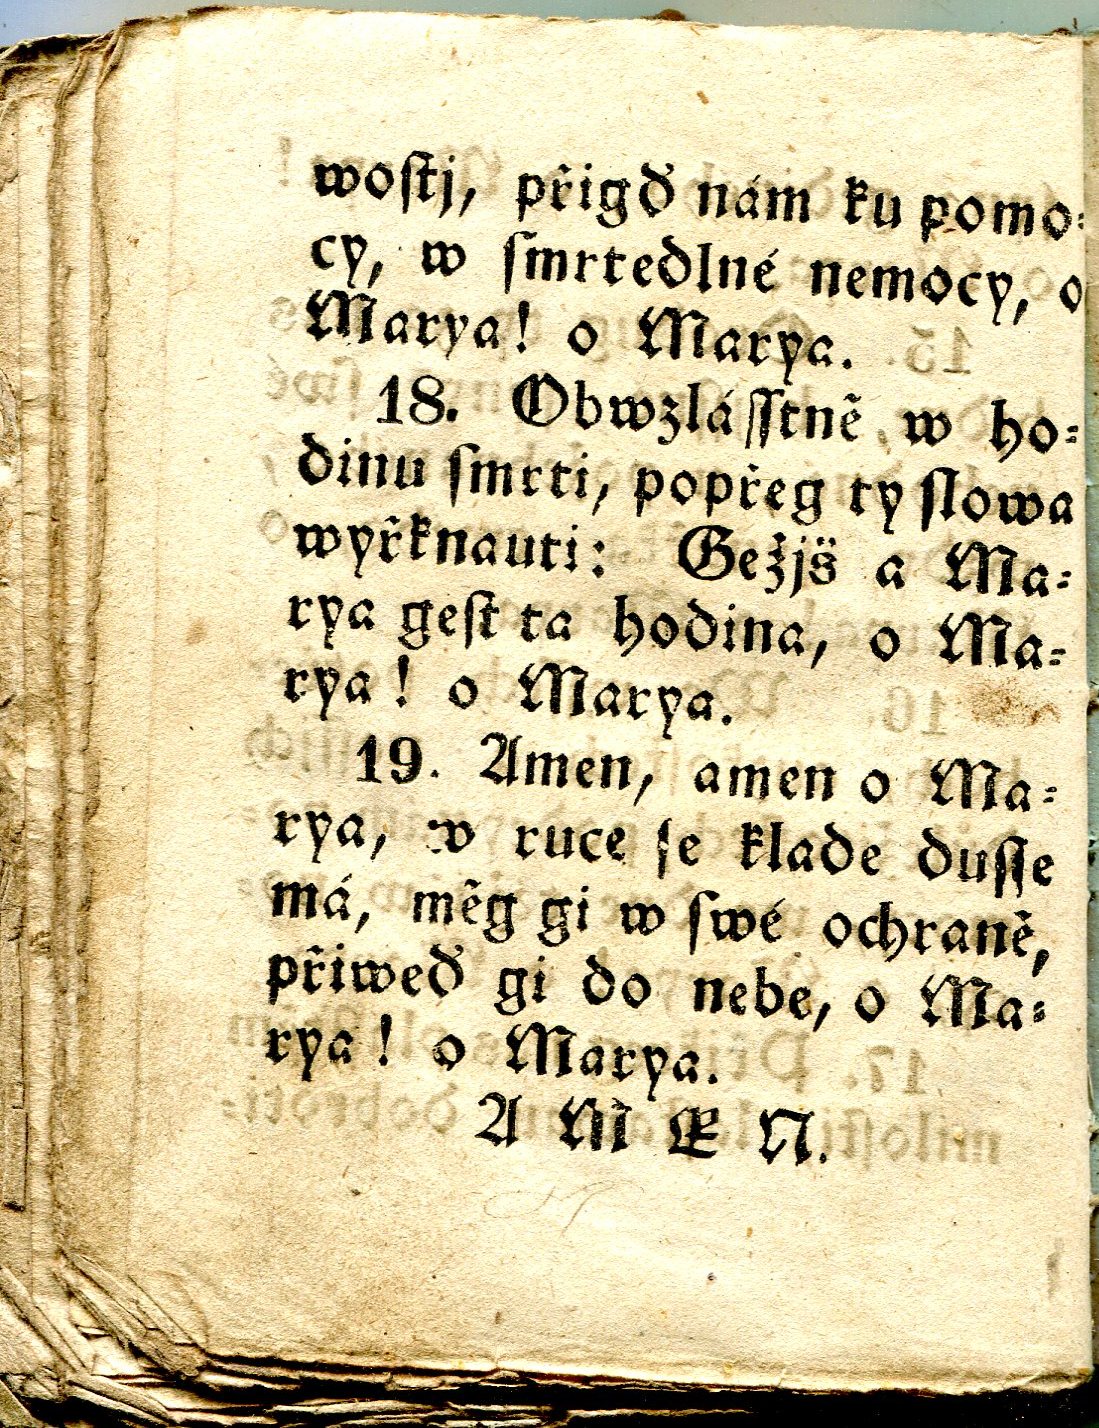 woſtj, přigď nám ku pomo⸗
cy, w ſmrtedlné nemocy, o
Marya! o Marya.
18. Obwzláſſtně w ho⸗
dinu ſmrti, popřeg ty ſlowa
wyřknauti: Gežjš a Ma⸗
rya geſt ta hodina, o Ma⸗
rya! o Marya.
19. Amen, amen o Ma⸗
rya, w ruce ſe klade duſſe
má, měg gi w ſwé ochraně,
přiweď gi do nebe, o Ma⸗
rya! o Marya.
A M E N.